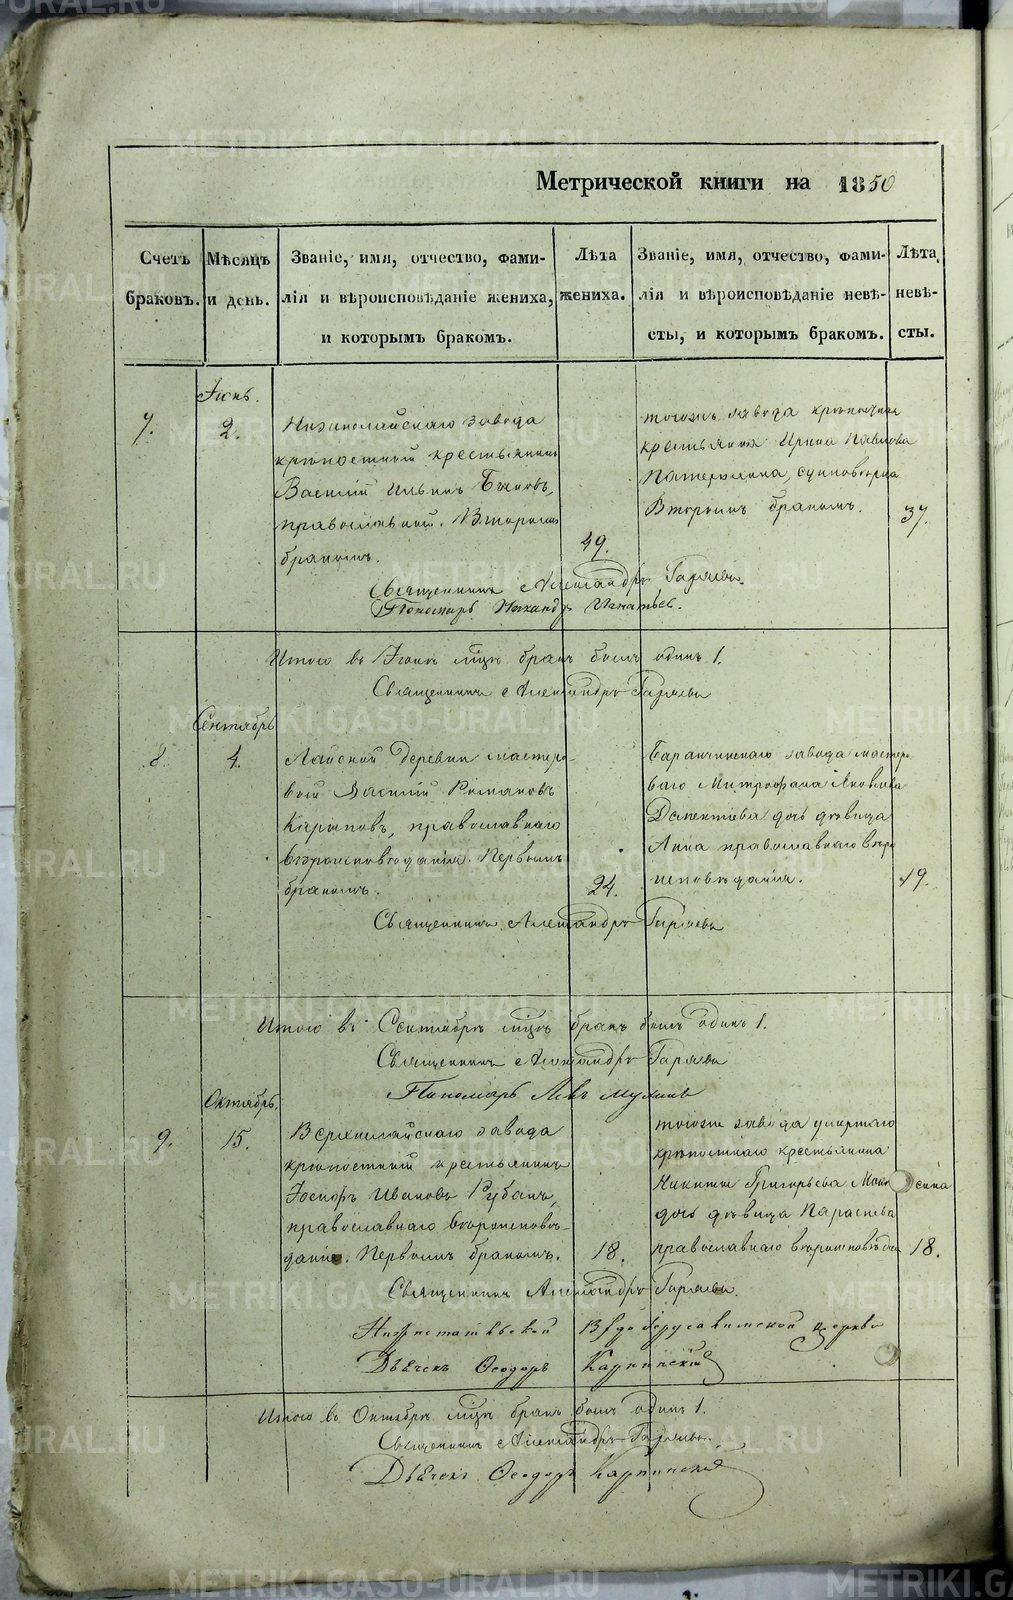 Метрической книги на 1850
Счетъ браковъ.
Мѣсяцъ и день.
Званіе, имя, отчество, фами-
лія и вѣроисповѣданіе жениха,
и которымъ бракомъ.
Лѣта жениха.
Званіе, имя, отчество, фами-
лія и вѣроисповѣданіе невѣ-
сты, и которымъ бракомъ.
Лѣта невѣ-
сты.
Іюнь.
7.
2.
Нижнелайскаго завода
крѣпостный крестьянинъ
Василій Ильинъ Быковъ,
православный. Вторымъ
бракомъ.
49.
тогожъ завода крѣпостная
крестьянка Ирина Павлова
единовѣрка
Вторымъ бракомъ.
37.
Священникъ Александръ Гаряевъ.
Пономарь Никандръ Игнатьев.
Итого въ Іюнѣ мцѣ бракъ былъ одинъ 1.
Священникъ Александръ Гаряевъ
Сентябрь
8.
4.
Лайской деревни мастеро-
вый Василій Романовъ
православнаго
вѣроисповѣданія. Первымъ
бракомъ.
24.
Баранчинскаго завода масте-
ваго Митрофана Яковлева
дочь дѣвица
Анна православнаго вѣро
исповѣданія.
19.
Священникъ Александръ Гаряевъ
Итого въ Сентябрѣ мцѣ бракъ былъ одинъ 1.
Священникъ Александръ Гаряевъ
Пономарь Левъ
Октябрь.
9.
15.
Верхнелайскаго завода
крѣпостный крестьянинъ
Іосифъ Ивановъ Рубанъ,
православнаго вѣроисповѣ-
данія. Первымъ бракомъ.
18.
тогоже завода умершаго
крѣпостнаго крестьянина
Никиты Григорьева
дочь дѣвица Параскева
православнаго вѣроисповѣданія
18.
Священникъ Александръ Гаряевъ.
Вхідоіерусалимской церкви
Дьячекъ Ѳеодоръ Карпинскій
Итого въ Октябрѣ мцѣ бракъ былъ одинъ 1.
Священникъ Александръ Гаряевъ.
Дьячекъ Ѳеодоръ Карпинскій
METRIKI.GASO-URAL.RU